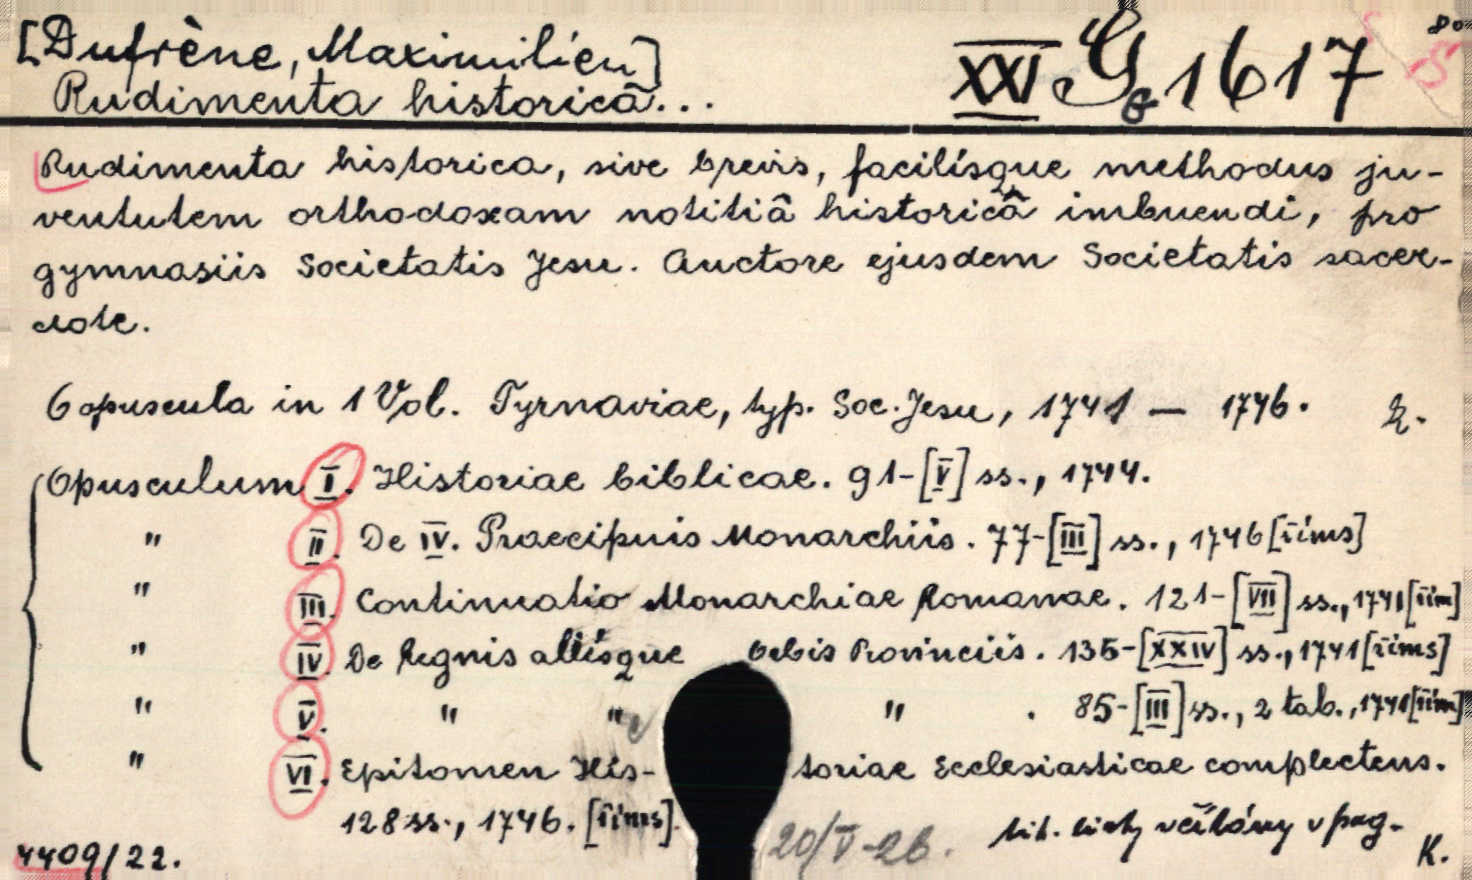 [Dufrène, Maximilien]
Rudimenta historicâ...
XXI G 1617
Rudimenta historica, sive brevis, facilísque methodus ju-
ventutem orthodoxam notitiâ historicâ imbuendi, pro
gymnasiis Societatis Jesu. Auctore ejusdem Societatis sacer-
dote.
6 opuscula in 1 Vol. Tyrnaviae, typ. Soc. Jesu, 1741 — 1746.
Opusculum I. Historiae biblicae. 91-[V] ss., 1744.
" II. De IV. Praecipuis Monarchiis. 77-[III] ss., 1746 [rims]
" III. Continuatio Monarchiae Romanae. 121-[VII] ss., 1741 [rim]
" IV. De Regnis aliisque Orbis Provinciis. 135-[XXIV] ss., 1741 [rims]
" V. " " " . 85-[III] ss., 2 tab., 1741 [rim]
" VI. Epitomen His- toriae Ecclesiasticae complectens.
128 ss., 1746. [rims].
20/V-26.
K.
4409/22.